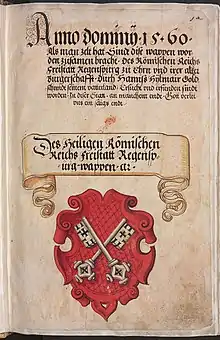 Anno dominy 15·60·
Als man zelt hat· Sindt dise wappen wor
den zusamen bracht· des Römischen Reichs
Freistatt Regenspurg zu Ehrn vnd irer alter
burgerschafft· Durch Hanns
schmidt seinem vatterland·
worden· In diser Statt· an manchem endt· Gott verlei
vns ein seligs endt·
Des Heiligen Römischen
Reichs Freistatt Regensp
urg wappen etc·